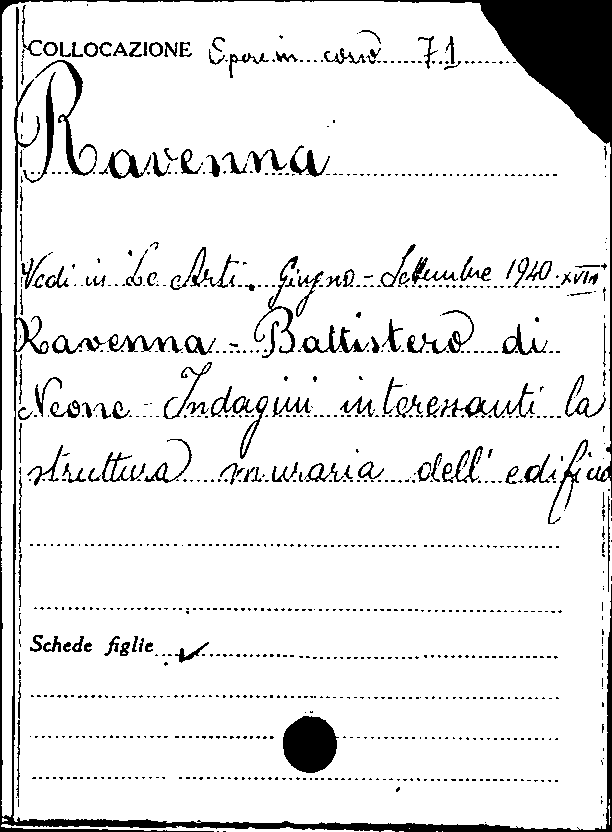 COLLOCAZIONE Opere in corso 71
Ravenna
Vedi in Le Arti. Giugno - Settembre 1940. XVIII
Ravenna - Battistero di
Neone - Indagini interessanti la
struttura muraria dell' edificio
Schede figlie